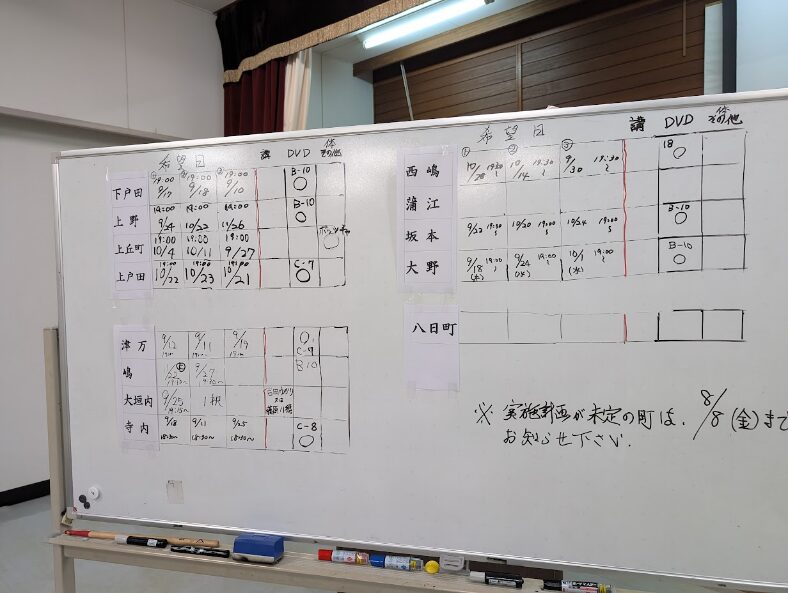 希望日 講 DVD 体その他
① 19:00 ② 19:00 ③ 19:00 B-10
下戸田 9/17 9/18 9/10 ○
19:00 19:00 19:00 B-10
上野 9/24 10/22 10/26 ○
19:00 19:00 19:00
上丘町 10/4 10/11 9/27 ○
19:00 19:00 19:00 C-7
上戸田 10/22 10/23 10/21 ○
津万 9/12 9/11 9/19 ○ C-9
嶋 9/27 B-10
大垣内 9/25
寺内 9/18 9/11 9/25 C-8
18:30~ 18:30~ 18:30~ ○
希望日 講 DVD 体その他
① ② ③
西嶋 10/28 19:30~ 10/14 19:30~ 9/30 19:30~ 18 ○
蒲江
坂本 9/22 19:00~ 10/20 19:00~ 10/24 19:00~ B-10 ○
大野 9/18(木) 19:00~ 9/24(水) 19:00~ 10/1(水) 19:00~ B-10 ○
八日町
※ 実施計画が未定の町は、8/8(金)まで
お知らせ下さい.